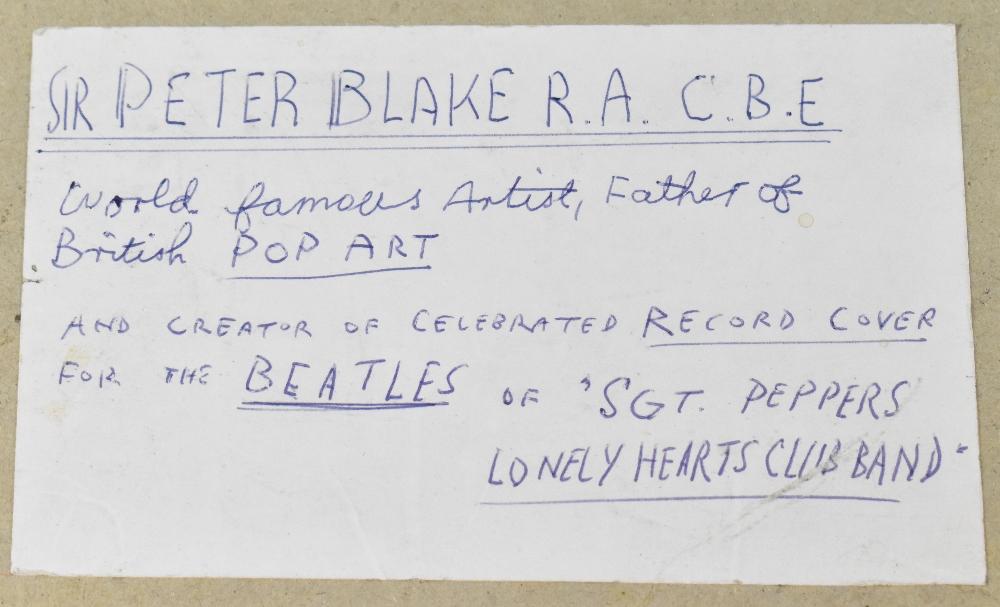 SIR PETER BLAKE R.A. C.B.E
World famous Artist, Father of
British POP ART
AND CREATOR OF CELEBRATED RECORD COVER
FOR THE BEATLES OF "SGT. PEPPERS
LONELY HEARTS CLUB BAND"